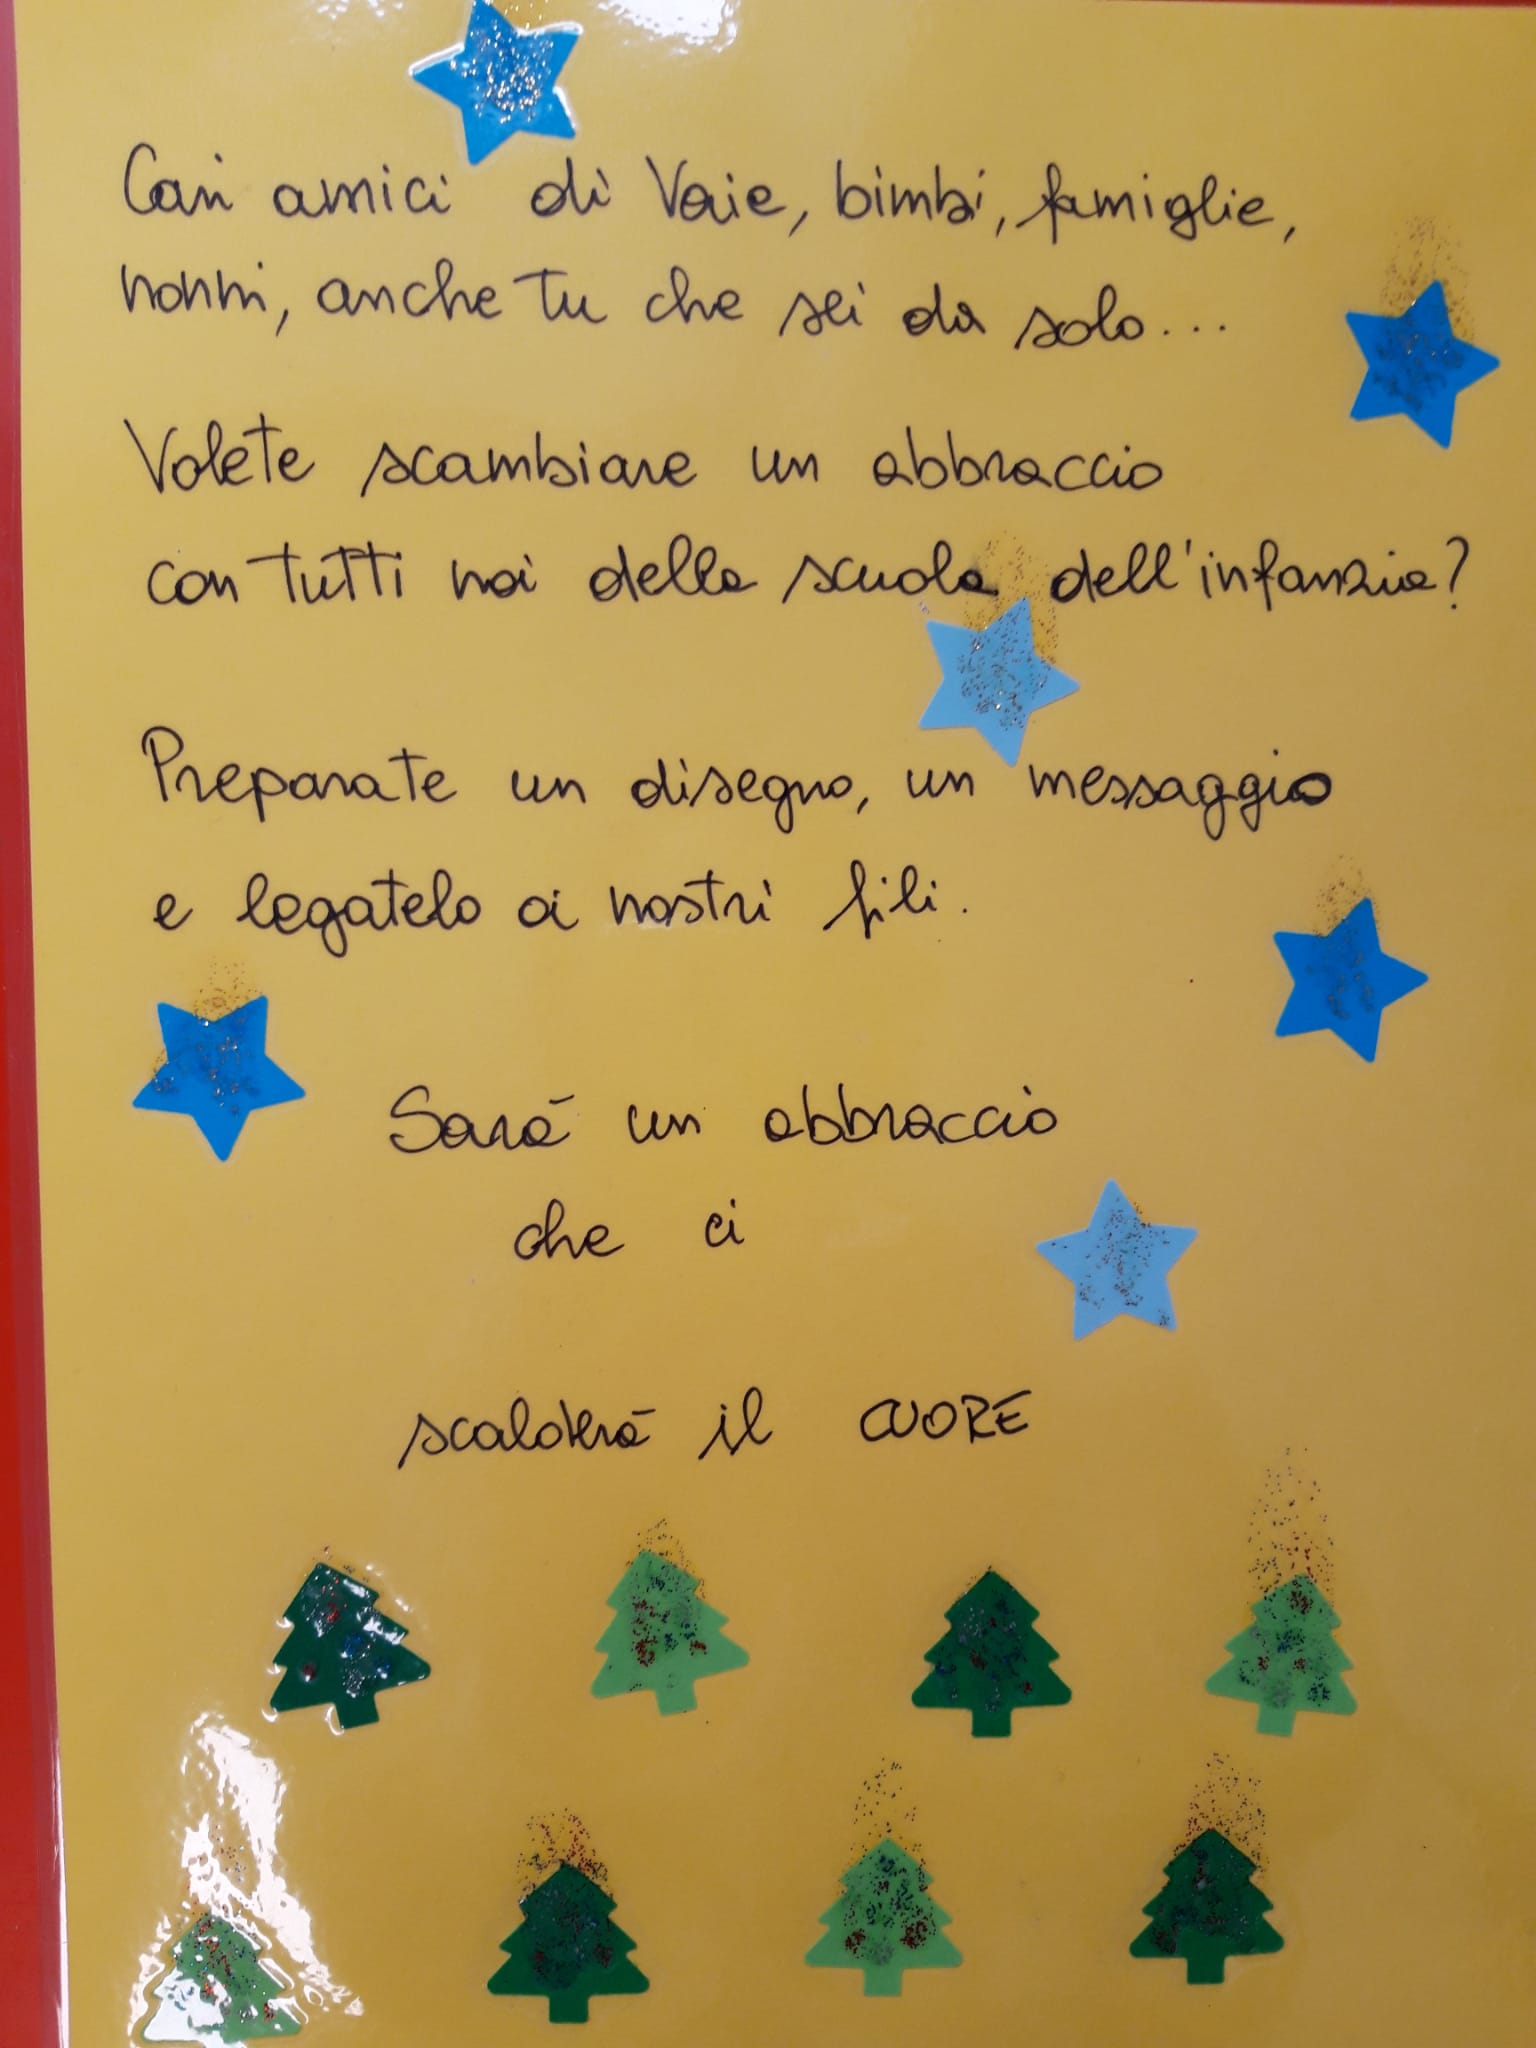 Cari amici di Vaie, bimbi, famiglie,
nonni, anche tu che sei da solo...
Volete scambiare un abbraccio
con tutti noi della scuola dell'infanzia?
Preparate un disegno, un messaggio
e legatelo ai nostri fili.
Sarà un abbraccio
che ci
scalderà il CUORE